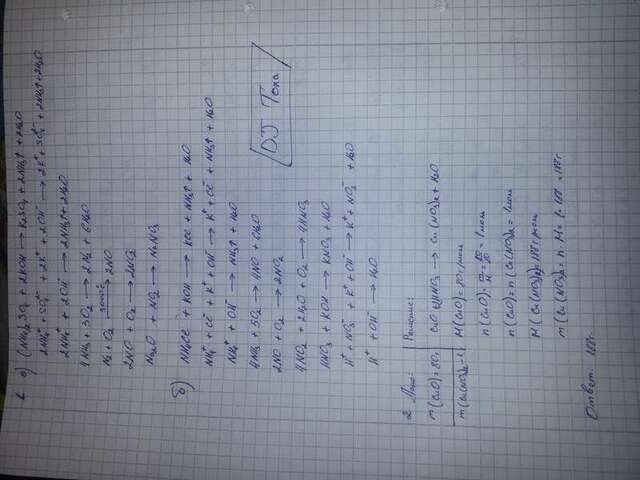 а) (NH₄)₂SO₄ + 2KOH → K₂SO₄ + 2NH₃↑ + 2H₂O
2NH₄⁺ + SO₄²⁻ + 2K⁺ + 2OH⁻ → 2K⁺ + SO₄²⁻ + 2NH₃↑ + 2H₂O
2NH₄⁺ + 2OH⁻ → 2NH₃↑ + 2H₂O
4NH₃ + 3O₂ → 2N₂ + 6H₂O
N₂ + O₂ → 2NO
2NO + O₂ → 2NO₂
б) NH₄Cl + KOH → KCl + NH₃↑ + H₂O
NH₄⁺ + Cl⁻ + K⁺ + OH⁻ → K⁺ + Cl⁻ + NH₃↑ + H₂O
NH₄⁺ + OH⁻ → NH₃↑ + H₂O
4NH₃ + 5O₂ → 4NO + 6H₂O
2NO + O₂ → 2NO₂
4NO₂ + 2H₂O + O₂ → 4HNO₃
HNO₃ + KOH → KNO₃ + H₂O
H⁺ + NO₃⁻ + K⁺ + OH⁻ → K⁺ + NO₃⁻ + H₂O
H⁺ + OH⁻ → H₂O
DJ Тоха
2 Дано:
m(CuO) = 80г
m(Cu(NO₃)₂) - ?
Решение:
CuO + 2HNO₃ → Cu(NO₃)₂ + H₂O
M(CuO) = 80г/моль
n(CuO) = m/M = 80/80 = 1моль
n(CuO) = n(Cu(NO₃)₂) = 1моль
M(Cu(NO₃)₂) = 188г/моль
m(Cu(NO₃)₂) = n·M = 1·188 = 188г.
Ответ: 188г.